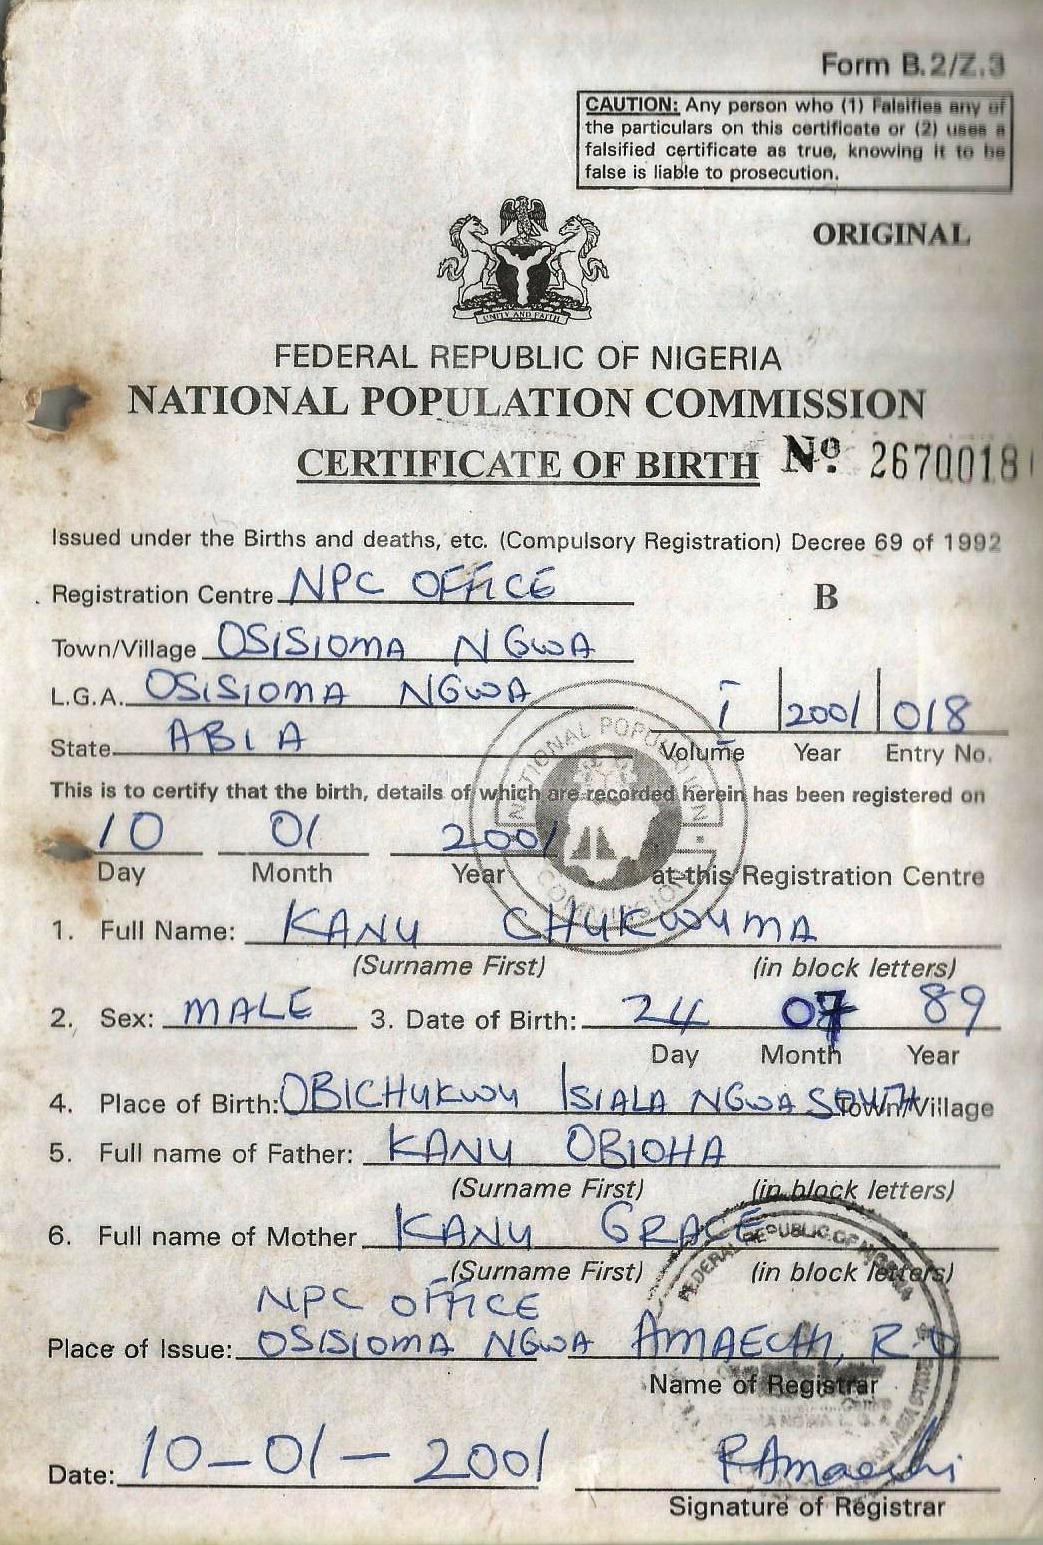 Form B.2/Z.3
CAUTION: Any person who (1) Falsifies any of
the particulars on this certificate or (2) uses a
falsified certificate as true, knowing it to be
false is liable to prosecution.
ORIGINAL
UNITY AND FAITH
FEDERAL REPUBLIC OF NIGERIA
NATIONAL POPULATION COMMISSION
CERTIFICATE OF BIRTH Nº. 2670018
Issued under the Births and deaths, etc. (Compulsory Registration) Decree 69 of 1992
Registration Centre NPC OFFICE B
Town/Village OSISIOMA NGWA
L.G.A. OSISIOMA NGWA I 2001 018
State ABIA Volume Year Entry No.
This is to certify that the birth, details of which are recorded herein has been registered on
10 01 2001
Day Month Year at this Registration Centre
NATIONAL POPULATION COMMISSION
1. Full Name: KANU CHUKWUMA
(Surname First) (in block letters)
2. Sex: MALE 3. Date of Birth: 24 07 89
Day Month Year
4. Place of Birth: OBICHUKWU ISIALA NGWA SOUTH Town/Village
5. Full name of Father: KANU OBIOHA
(Surname First) (in block letters)
6. Full name of Mother KANU GRACE
(Surname First) (in block letters)
FEDERAL REPUBLIC OF NIGERIA
NPC OFFICE
Place of Issue: OSISIOMA NGWA AMAECHI, R.O
Name of Registrar
Date: 10-01-2001 RAmaechi
Signature of Registrar